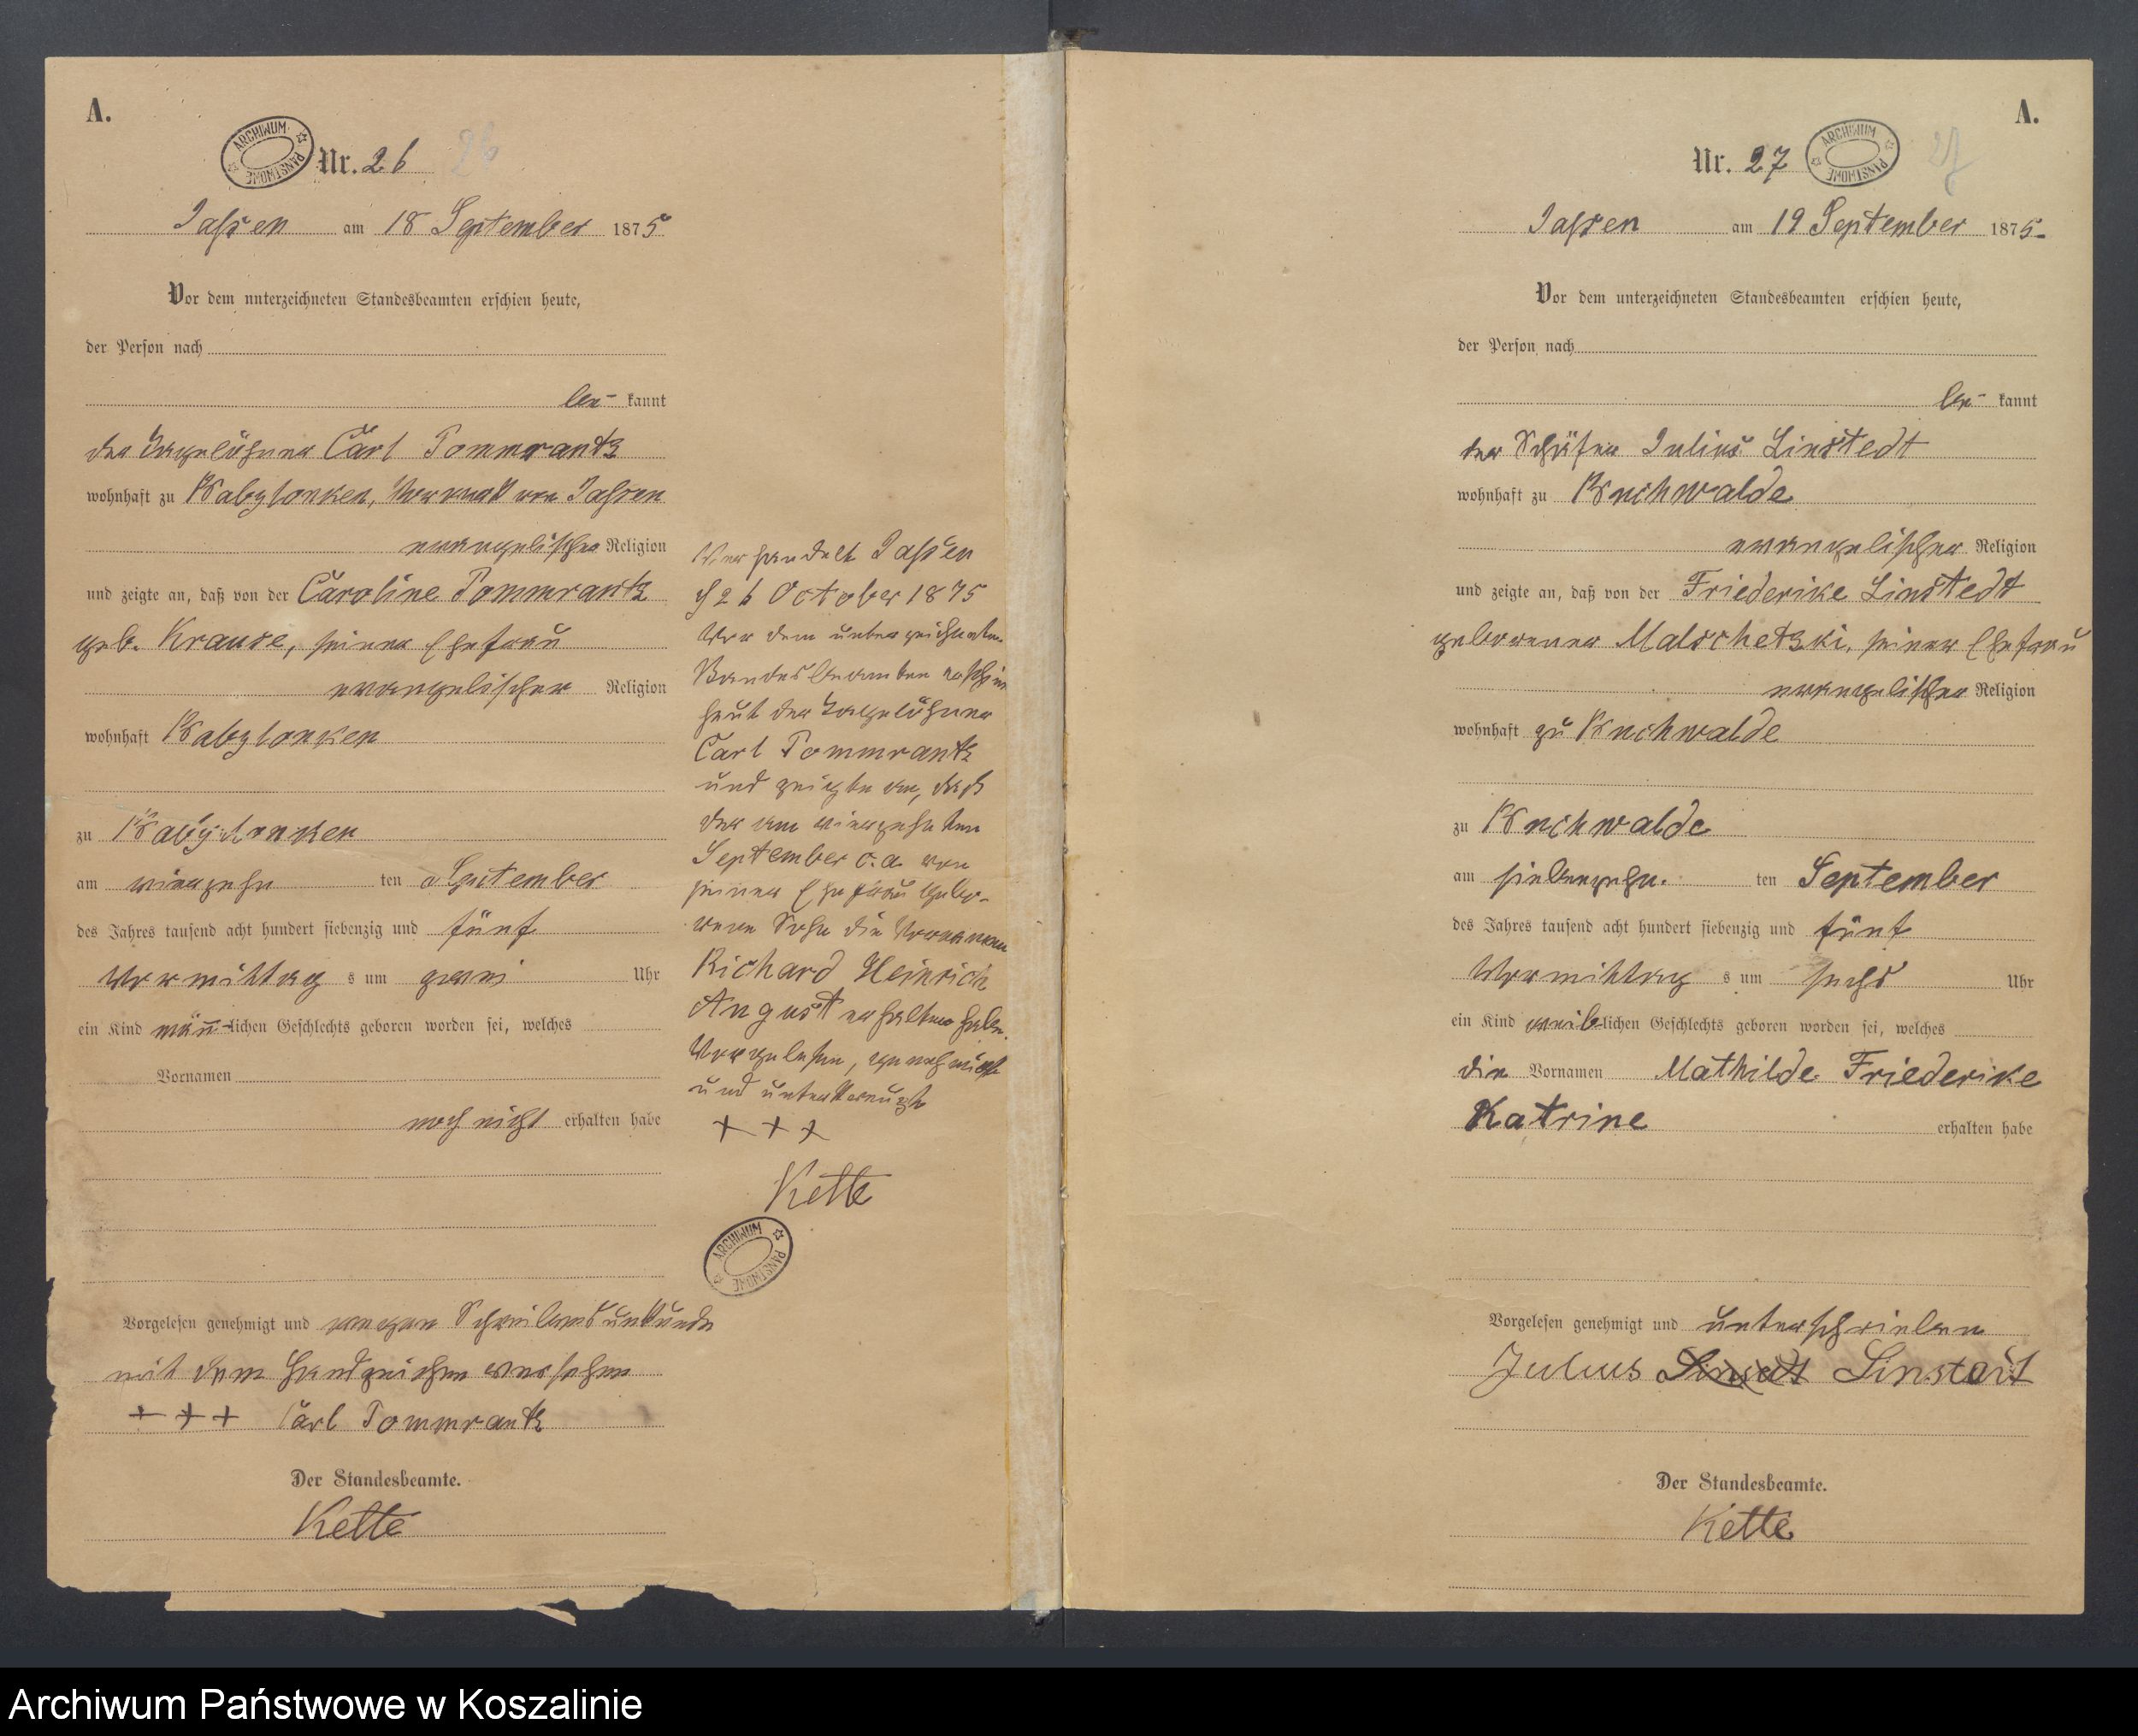 A.
ARCHIWUM PAŃSTWOWE
Nr. 26 26
Jassen am 18 September 1875
Vor dem unterzeichneten Standesbeamten erschien heute,
der Person nach
be- kannt
der Tagelöhner Carl Pommrantz
wohnhaft zu Babylonken, Vorwerk von Jassen
evangelischer Religion
und zeigte an, daß von der Caroline Pommrantz
geb. Krause, seiner Ehefrau
evangelischer Religion
wohnhaft Babylonken
zu Babylonken
am vierzehn ten September
des Jahres tausend acht hundert siebenzig und fünf
Vormittag s um zwei Uhr
ein Kind männ-lichen Geschlechts geboren worden sei, welches
Vornamen
noch nicht erhalten habe
Vorgelesen genehmigt und wegen Schreibensunkunde
mit dem Handzeichen versehen
+++ Carl Pommrantz
Der Standesbeamte.
Kette
Verhandelt Jassen
d 26 October 1875
Vor dem unterzeichneten
Standesbeamten erschien
heut der Tagelöhner
Carl Pommrantz
und zeigte an, daß
der am vierzehnten
September c. a. von
seiner Ehefrau gebo-
rene Sohn die Vornamen
Richard Heinrich
August erhalten habe.
Vorgelesen, genehmigt
und unterkreuzt
+++
Kette
ARCHIWUM PAŃSTWOWE
A.
Nr. 27 27
ARCHIWUM PAŃSTWOWE
Jassen am 19 September 1875-
Vor dem unterzeichneten Standesbeamten erschien heute,
der Person nach
be- kannt
der Schäfer Julius Linstedt
wohnhaft zu Buchwalde
evangelischer Religion
und zeigte an, daß von der Friederike Linstedt
geborener Malschetzki, seiner Ehefrau
evangelischer Religion
wohnhaft zu Buchwalde
zu Buchwalde
am siebenzehn. ten September
des Jahres tausend acht hundert siebenzig und fünf
Vormittag s um sechs Uhr
ein Kind weiblichen Geschlechts geboren worden sei, welches
die Vornamen Mathilde Friederike
Katrine erhalten habe
Vorgelesen genehmigt und unterschrieben
Julius Linstedt
Der Standesbeamte.
Kette
Archiwum Państwowe w Koszalinie